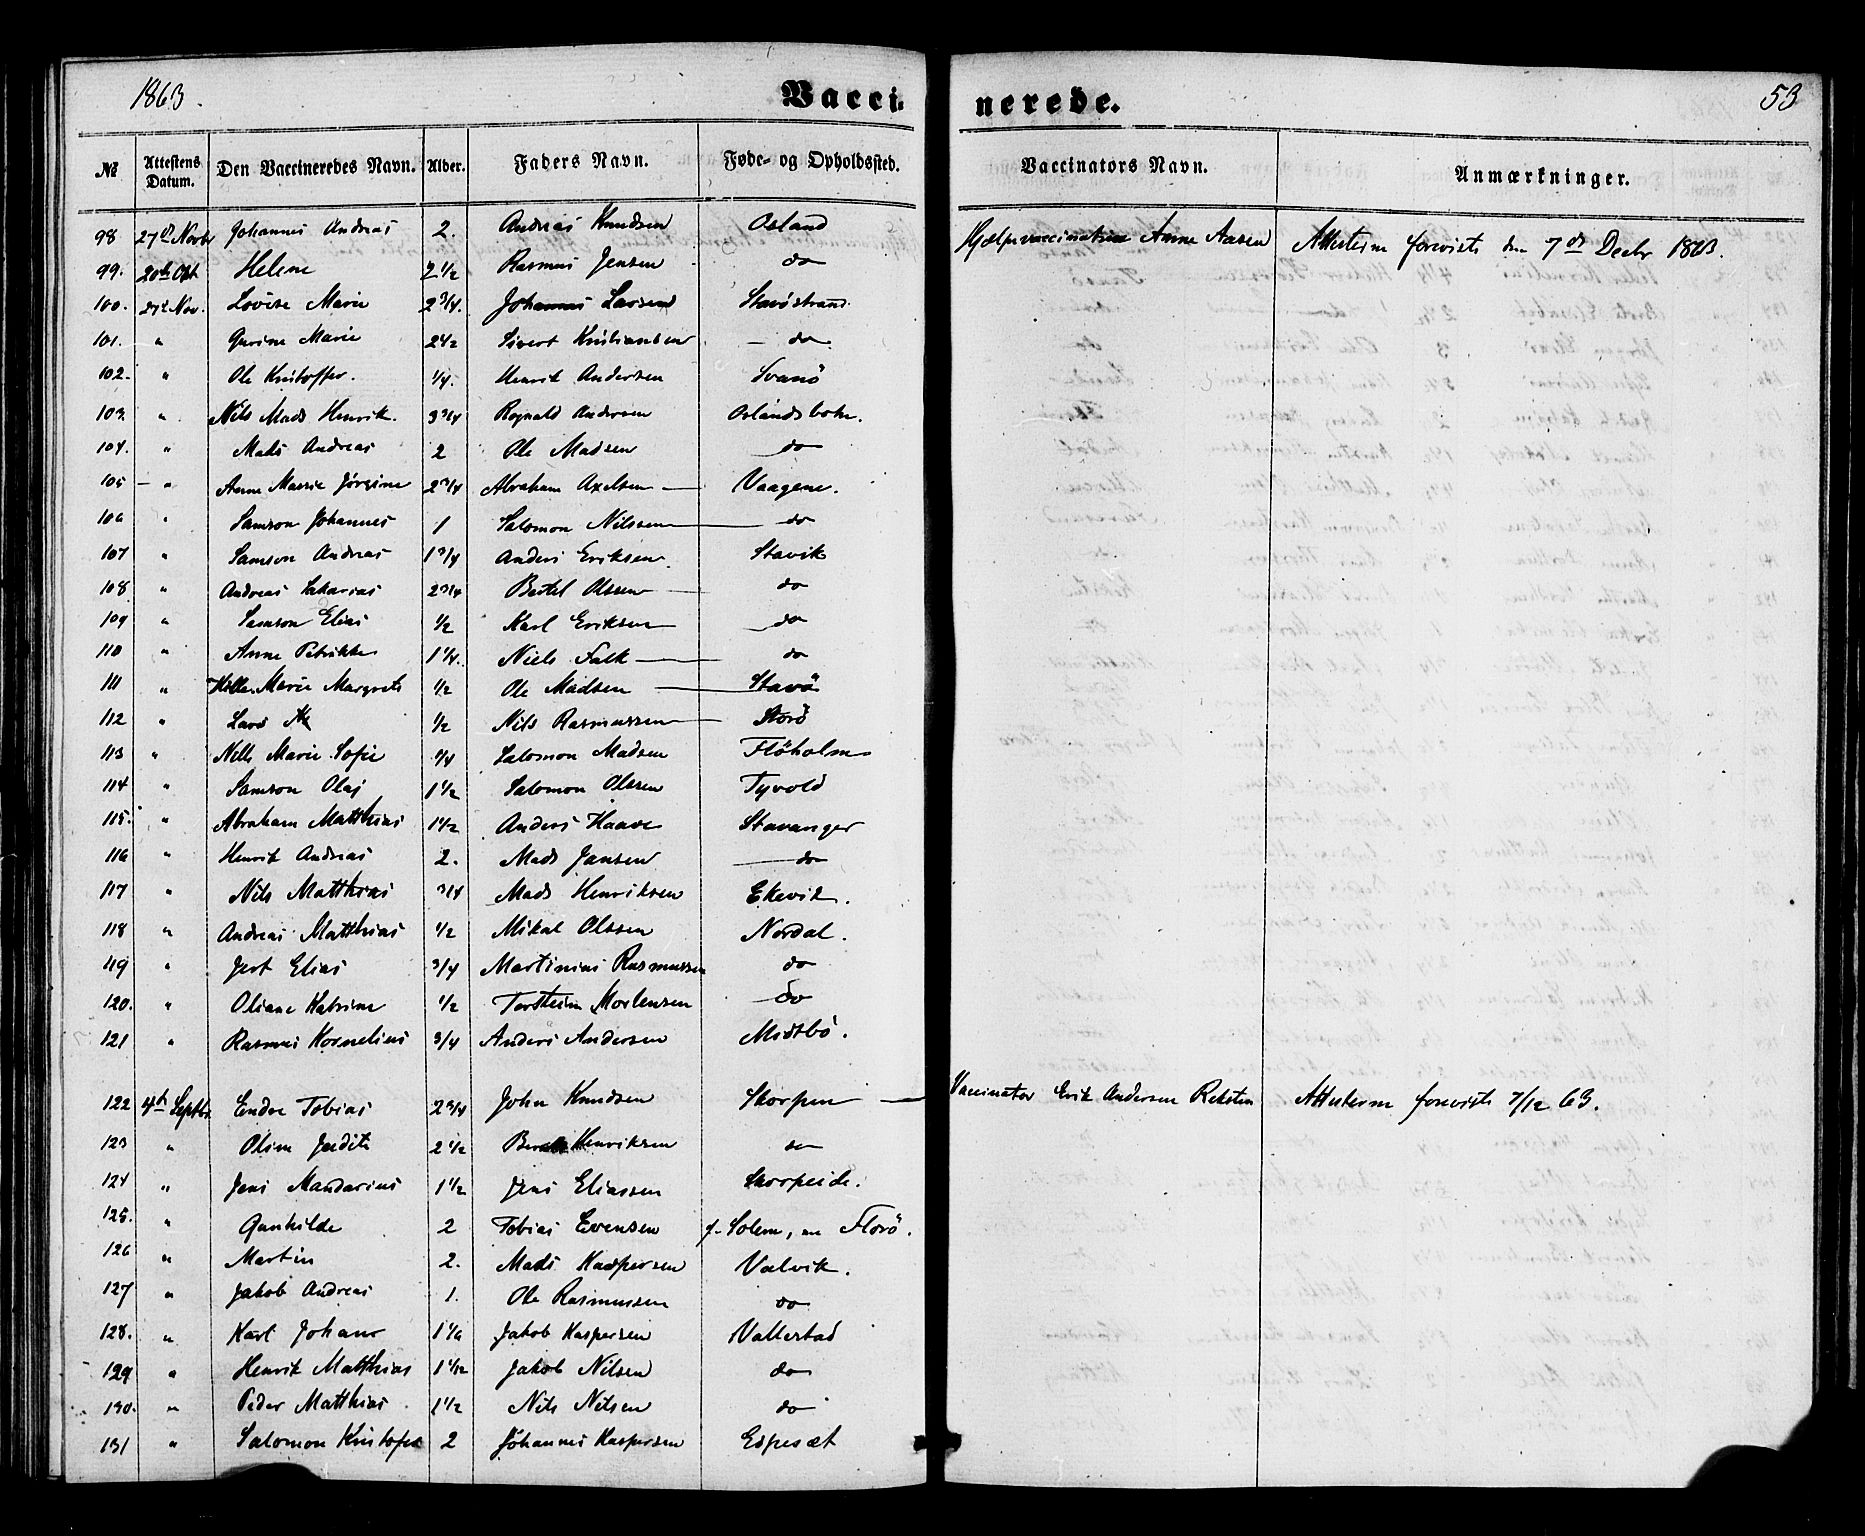 1863. Vaccinerede. 53
№ Attestens Datum. Den Vaccineredes Navn. Alder. Faders Navn. Føde- og Opholdssted. Vaccinators Navn. Anmærkninger.
98 27de Novbr Johannes Andreas 2. Andreas Knudsen Osland Hjælpevaccinatrice Anne Aasen Attesterne forevist den 7de Decbr 1863.
99. 20de Oct Helene 2 1/2 Rasmus Jensen do
100. 27de Nov. Lovise Marie 2 3/4. Johannes Larsen Stavöstrand
101. " Gurine Marie 2 1/2 Sivert Kristiansen do
102. " Ole Kristoffer. 1/4. Henrik Andersen Svanö
103. " Nils Mads Henrik. 3 3/4 Rognald Andersen Oslandsbotn.
104. " Mads Andreas 2 Ole Madsen do
105 " Anne Marie Jørgine 2 3/4 Abraham Axelsen Vaagene.
106 " Samson Johannes 1 Salomon Nilssen do
107 " Samson Andreas 1 3/4 Anders Eriksen. Stavik
108 " Andreas Sakarias 2 3/4 Bertel Olssen do
109 " Samson Elias 1/2 Karl Eriksen do
110 " Anne Petrikke 1 1/4. Niels Falk do
111 " Marie Margrete 1/2 Ole Madsen Stavö
112 " Lars 1/2 Nils Rasmussen Storö
113 " Marie Sofie 3/4 Salomon Madsen Flöholm
114 " Samson Olai 1 1/2 Salomon Olssen Tyvold
115. " Abraham Matthias 1 1/2 Anders Haave Stavanger
116 " Henrik Andreas 2. Mads Jansen do
117 " Nils Matthias 3/4 Mads Henriksen Ekevik.
118 " Andreas Matthias 1/2 Mikal Olssen Nordal.
119 " Jert Elias 3/4 Martinus Rasmussen do
120. " Oliane Katrine 1/2 Torsteins Mortensen do
121 " Rasmus Kornelius 3/4 Anders Andersen Midtbö.
122 4de Septbr Endre Tobias 2 3/4 John Knudsen Skorpen Vaccinator Erik Andersen Reksten Attesterne forevist 7/12 63.
123 " Oline Judite 2 1/2 Henriksen do
124 " Jens Mandarius 1 1/2 Jens Eliassen Skorpeide.
125. " Gunhilde 2 Tobias Evensen f. Solem, nu Florö.
126 " Martin 2. Mads Kaspersen Valvik.
127 " Jakob Andreas 1. Ole Rasmussen do
128. " Karl Johan 1 1/6 Jakob Kaspersen Vallestad
129 " Henrik Matthias 1 1/12 Jakob Nilsen do
130. " Peder Matthias 1 1/2 Nils Nilsen do
131 " Salomon Kristofer 2 Johannes Kaspersen Espesæt